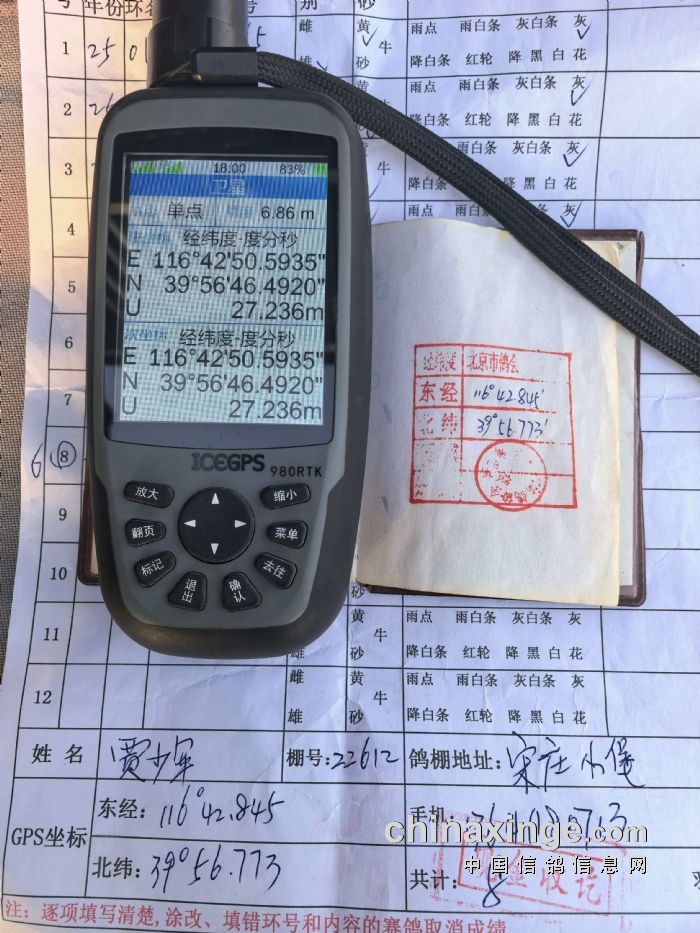 号 年份 环号 别 砂
1 25 01 雌 黄 牛 雨点 雨白条 灰白条 灰
雄 砂 降白条 红轮 降 黑 白 花
2 雨点 雨白条 灰白条 灰
降白条 红轮 降 黑 白 花
3 牛 雨点 雨白条 灰白条 灰
降白条 红轮 降 黑 白 花
4 雨点 雨白条 灰白条 灰
5
6
7
6 8
9
10
砂
11 雌 黄 牛 雨点 雨白条 灰白条 灰
雄 砂 降白条 红轮 降 黑 白 花
12 雌 黄 牛 雨点 雨白条 灰白条 灰
雄 砂 降白条 红轮 降 黑 白 花
18:00 83%
卫星
单点 6.86 m
经纬度-度分秒
E 116°42'50.5935"
N 39°56'46.4920"
U 27.236m
次坐标 经纬度-度分秒
E 116°42'50.5935"
N 39°56'46.4920"
U 27.236m
ICEGPS 980RTK
放大 缩小
翻页 菜单
标记 去往
退出 确认
经纬度 北京市鸽会
东经 116°42.845'
北纬 39°56.773'
姓名 贾少军 棚号:22612 鸽棚地址:宋庄小堡
GPS坐标 东经:116°42.845 手机:
北纬:39°56.773 共计:8
现金收讫
chinaxinge.com
中国信鸽信息网
注:逐项填写清楚,涂改、填错环号和内容的赛鸽取消成绩